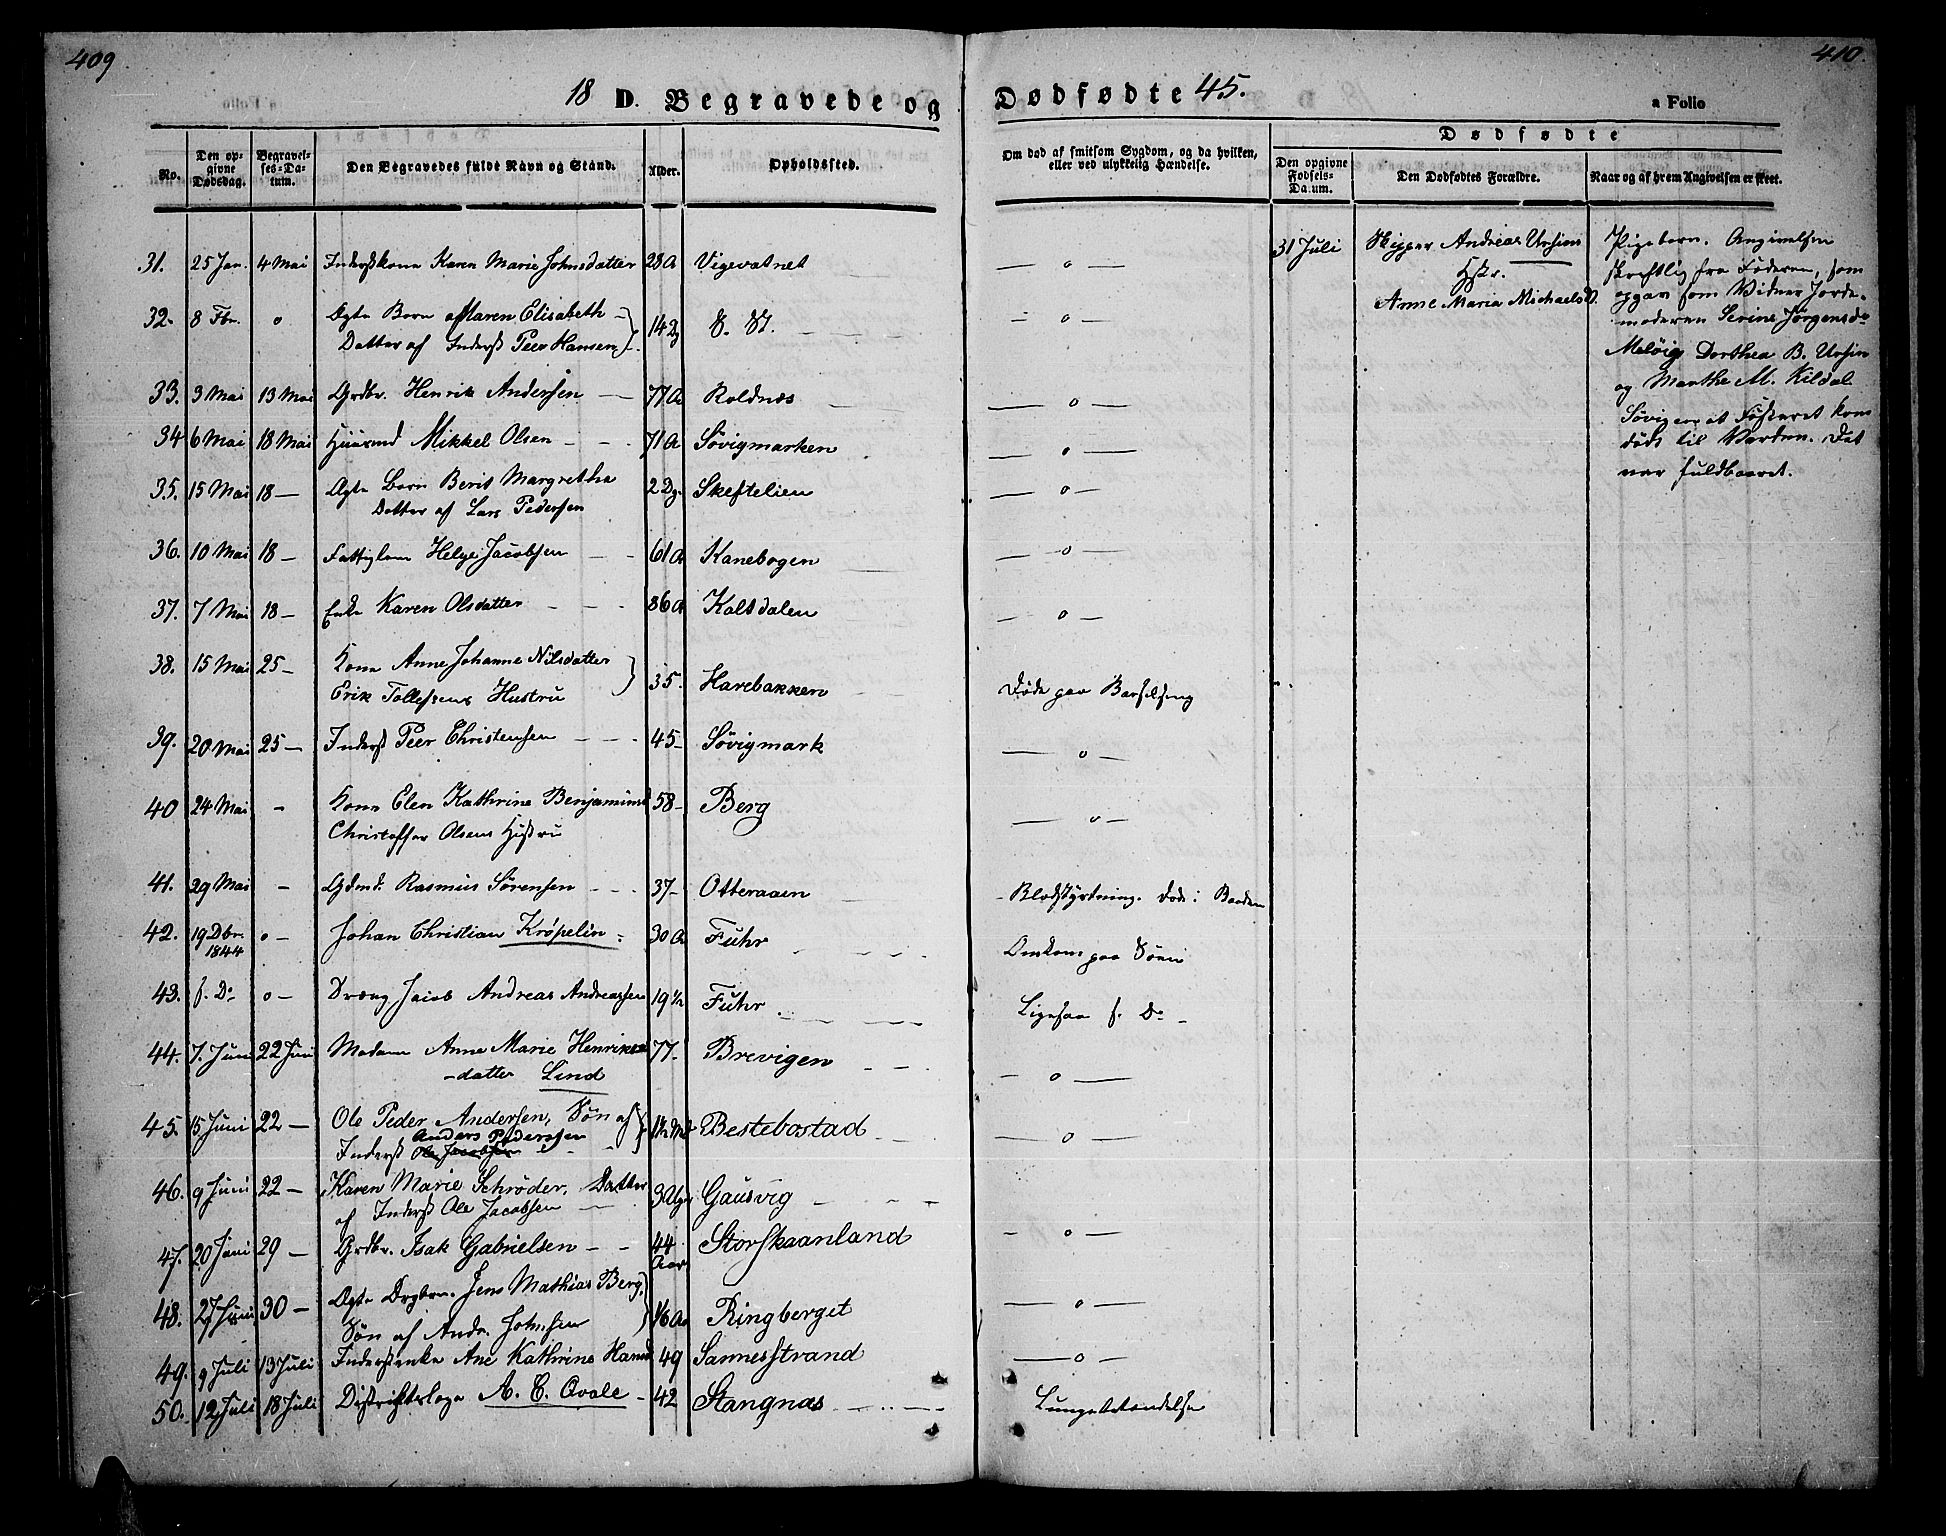 409
410.
18 D. Begravede og Dødfødte 45.
a Folio
No.
Den opgivne Dødsdag.
Begravelses-Datum.
Den Begravedes fulde Navn og Stand.
Alder.
Opholdssted.
Om død af smitsom Sygdom, og da hvilken, eller ved ulykkelig Hændelse.
Dødfødte
Den opgivne Fødsels-Datum.
Den Dødfødtes Forældre.
Naar og af hvem Angivelsen er skeet.
31. 25 Jan. 4 Mai Inderstkone Karen Marie Johnsdatter 28 A Vigevatnet — o —
32. 8 Fbr. o Ægte Barn Maren Elisabeth
Datter af Inderst Peer Hansen 14 Dg — o —
33. 3 Mai 13 Mai Grdbr. Henrik Andersen — 77 A Roldnæs — o —
34 6 Mai 18 Mai Huusmd Mikkel Olsen - - 71 A Søvigmarken — o —
35. 15 Mai 18 — Ægte Barn Berit Margretha
Datter af Lars Pedersen 2 Dg. Skeftelien — o —
36. 10 Mai 18 — Fattiglem Helge Jacobsen 61 A Kanebogen — o —
37. 7 Mai 18 — Enke Karen Olsdatter - - - 86 A Kalsdalen — o —
38. 15 Mai 25 — Kone Anne Johanne Nilsdatter
Erik Tollefsens Hustru 35. Harebakken Døde paa Barselseng
39. 20 Mai 25 — Inderst Peer Christensen - - - 45 — Søvigmark — o —
40 24 Mai - Kone Elen Kathrine Benjaminsd
Christoffer Olsens Hustru 58 — Berg — o —
41. 29 Mai - Gdmd. Rasmus Sørensen - - - 37 — Otteraaen - Blodstyrtning. Døde i Baaden
42. 19 Dbr. 1844 o — Johan Christian Kröpelin 30 A Fuhr Omkom paa Søen
43. f. Do o — Dreng Jacob Andreas Andreassen 19 ½ Fuhr Ligesaa f. Do -
44. 7. Juni 22 Juni Madame Anne Marie Henriks
-datter Lind 77 — Brevigen — o —
45. 15 Juni 22 — Ole Peder Andersen, Søn af
Anders Pedersen
Inderst Ole Jacobsen Bestebostad — o —
46. 9 Juni 22 — Karen Marie Schrøder, Datter
af Inderst Ole Jacobsen 3 Uger Gausvig
47. 20 Juni 29 — Grdbr. Isak Gabrielsen - - 44 Aar Storskaanland - o —
48. 27 Juni 30 — Ægte Jens Mathias Berg,
Søn af Andr. Johnsen Ringberget — o —
49. 9 Juli 13 Juli Inderstenke Ane Kathrine Hansd 49 Sannesstrand — o —
50. 12 Juli 18 Juli Districtslæge A. C. Qvale - 42 Stangnæs Lungebetændelse
31 Juli
Andreas Ursins
Hstr.
Anne Maria MichaelsD.
Pigebarn. Angivelsen
skriftlig fra Faderen, som
opgav som Vidner Jorde-
moderen Serine Jörgensdr
Meløig Dorthea B. Ursin
og Marthe M. Kildal
Søvigen at Fosteret kom
dødt til Verden. Det
var fuldbaaret.